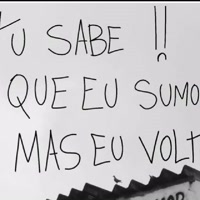 TU SABE !!
QUE EU SUMO
MAS EU VOLT